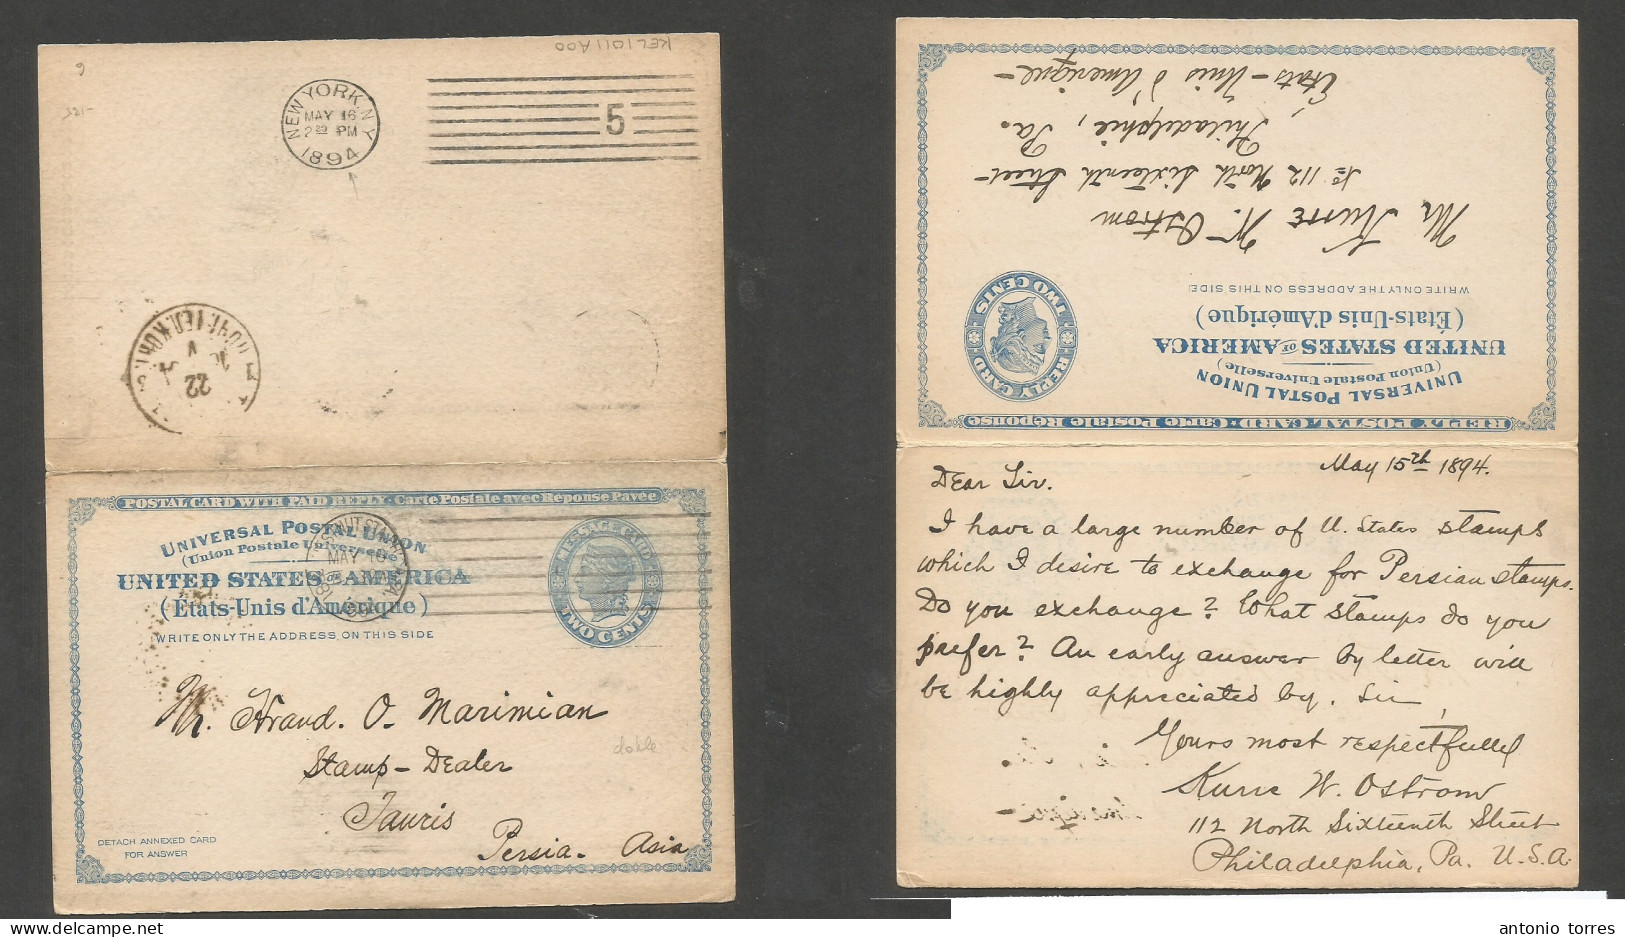 KEL1011A00
6
NEW YORK, N.Y.
MAY 16
2 PM
1894
5
22
V
POSTAL CARD WITH PAID REPLY - Carte Postale avec Réponse Payée
UNIVERSAL POSTAL UNION
(Union Postale Universelle)
UNITED STATES OF AMERICA
(États-Unis d'Amérique)
WRITE ONLY THE ADDRESS ON THIS SIDE
MESSAGE CARD
TWO CENTS
MAY
Mr. Hrand. O. Marimian
Stamp-Dealer
Tauris
Persia. Asia
doble
DETACH ANNEXED CARD
FOR ANSWER
REPLY POSTAL CARD - Carte Postale Réponse
UNIVERSAL POSTAL UNION
(Union Postale Universelle)
UNITED STATES OF AMERICA
(États-Unis d'Amérique)
WRITE ONLY THE ADDRESS ON THIS SIDE
REPLY CARD
TWO CENTS
Mr W. Ostrom
No 112 North Sixteenth Street-
Philadelphie, Pa.
États-Unis d'Amerique-
May 15th 1894.
Dear Sir.
I have a large number of U. States stamps
which I desire to exchange for Persian stamps.
Do you exchange? What stamps do you
prefer? An early answer by letter will
be highly appreciated by, Sir,
Yours most respectfully
W. Ostrom
112 North Sixteenth Street
Philadelphia, Pa. U.S.A.
antonio torres